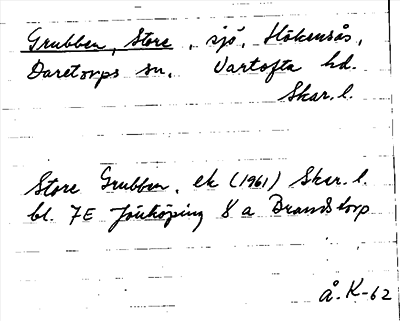 Grubben, Store, sjö, Hökensås,
Daretorps sn. Vartofta hd.
Skar. l.
Store Grubben, ek (1961) Skar. l.
bl. 7E Jönköping 8 a Brandstorp
Å. K-62